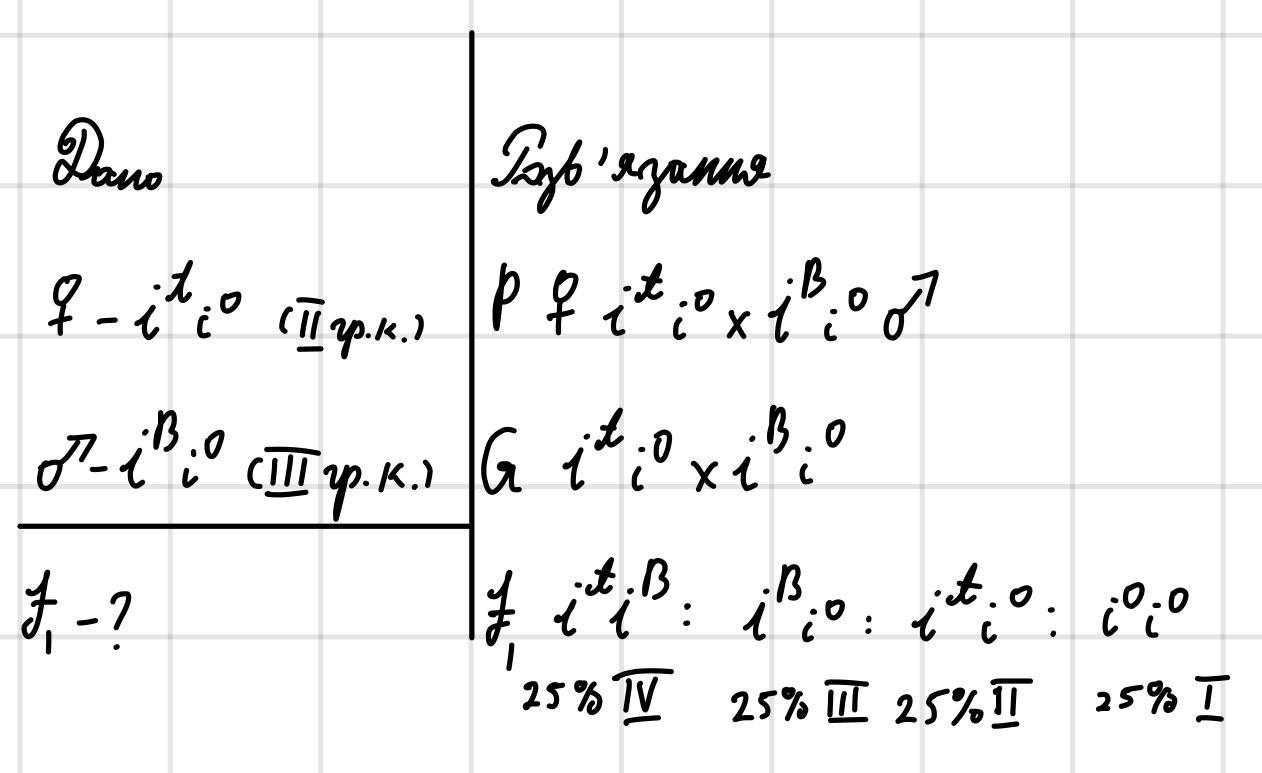 Дано
♀ - i^A i^0 (II гр.к.)
♂ - i^B i^0 (III гр.к.)
F₁ - ?
Розв'язання
P ♀ i^A i^0 x i^B i^0 ♂
G i^A i^0 x i^B i^0
F₁ i^A i^B : i^B i^0 : i^A i^0 : i^0 i^0
25% IV 25% III 25% II 25% I